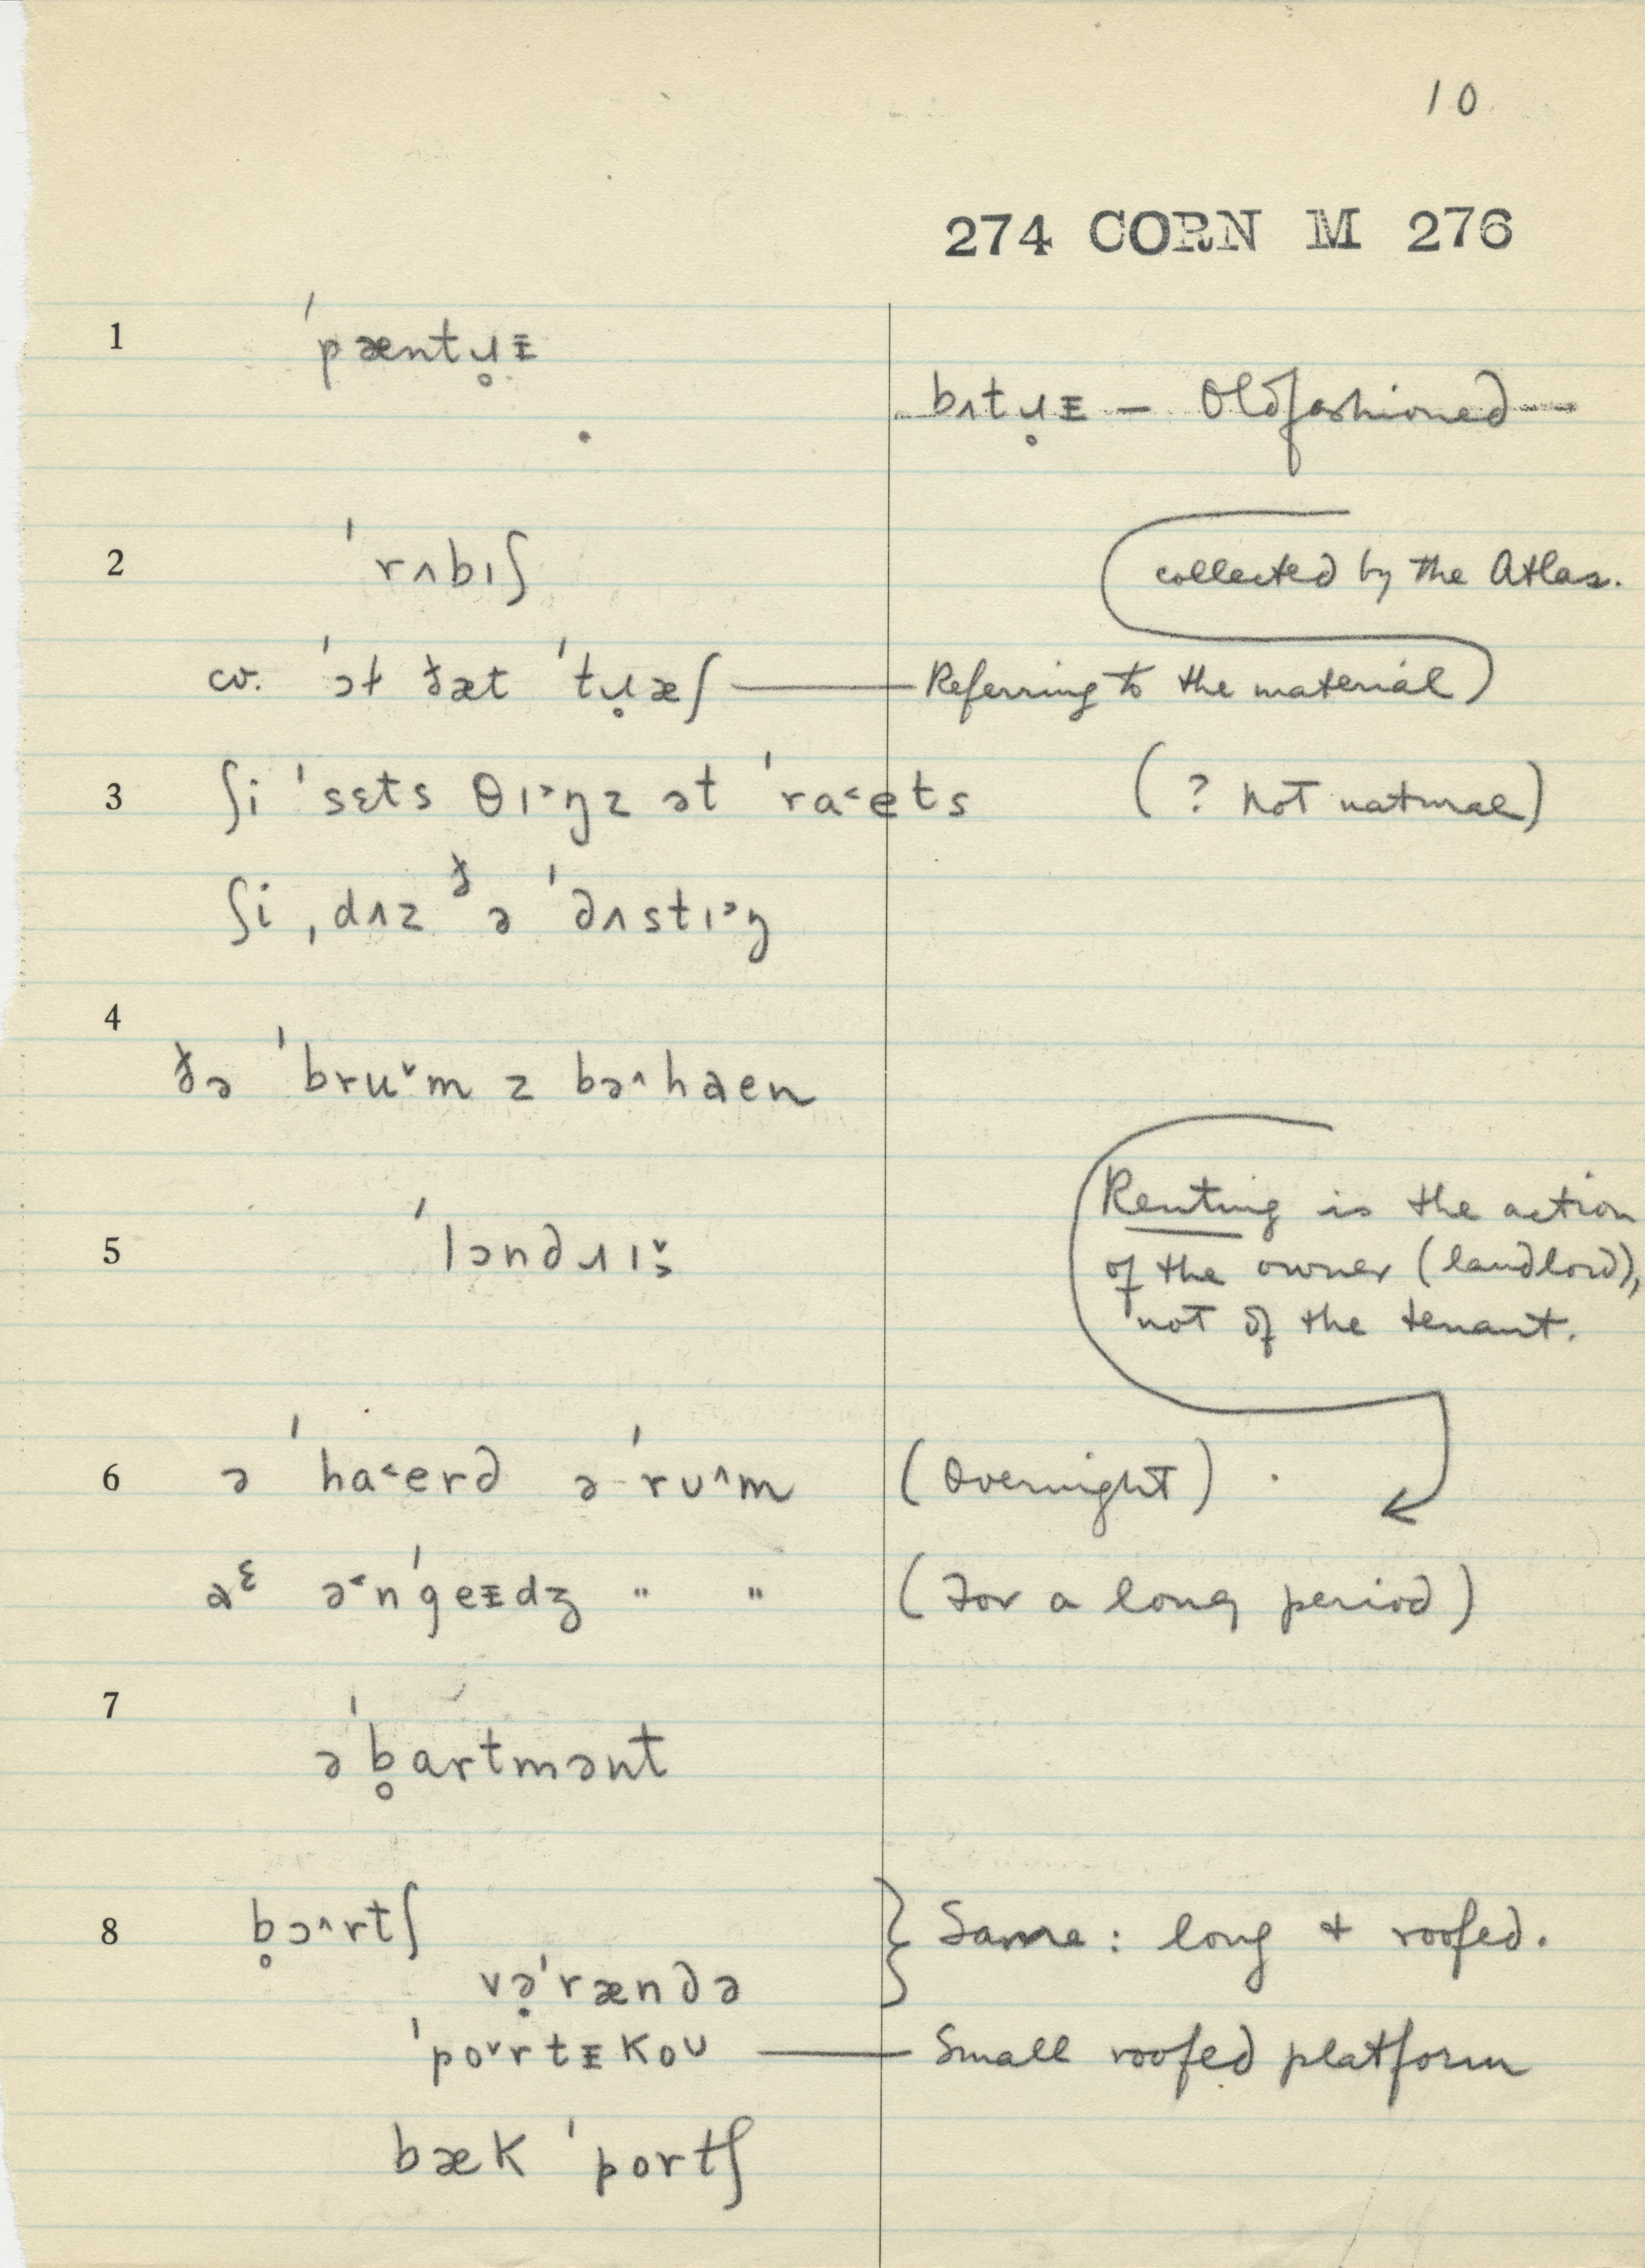 10
274 CORN M 276
1 ˈpæntɹ̥ᵻ
bʌtɹ̥ᵻ — Oldfashioned —
2 ˈrʌbɪʃ
collected by the Atlas.
cv. ˈɔɫ ðæt ˈtɹ̥æʃ — Referring to the material
3 ʃi ˈsɛts θɪ˃ŋz ət ˈra˂ets (? not natural)
ʃi ˌdʌz ᶞə ˈdʌstɪ˃ŋ
4
ðə ˈbru˅m z bə˄haen
Renting is the action
5 ˈlɔndɹɪ˅˃
of the owner (landlord),
not of the tenant.
6 ə ˈha˂erd ə ˈrʊ˄m (Overnight)
aᵋ ə˂nˈgeᵻdʒ " " (For a long period)
7
əˈb̥artmənt
8 b̥ɔ˄rtʃ } Same: long + roofed.
və̣ˈrændə
ˈpo˅rtᵻkoʊ — Small roofed platform
bæk ˈportʃ